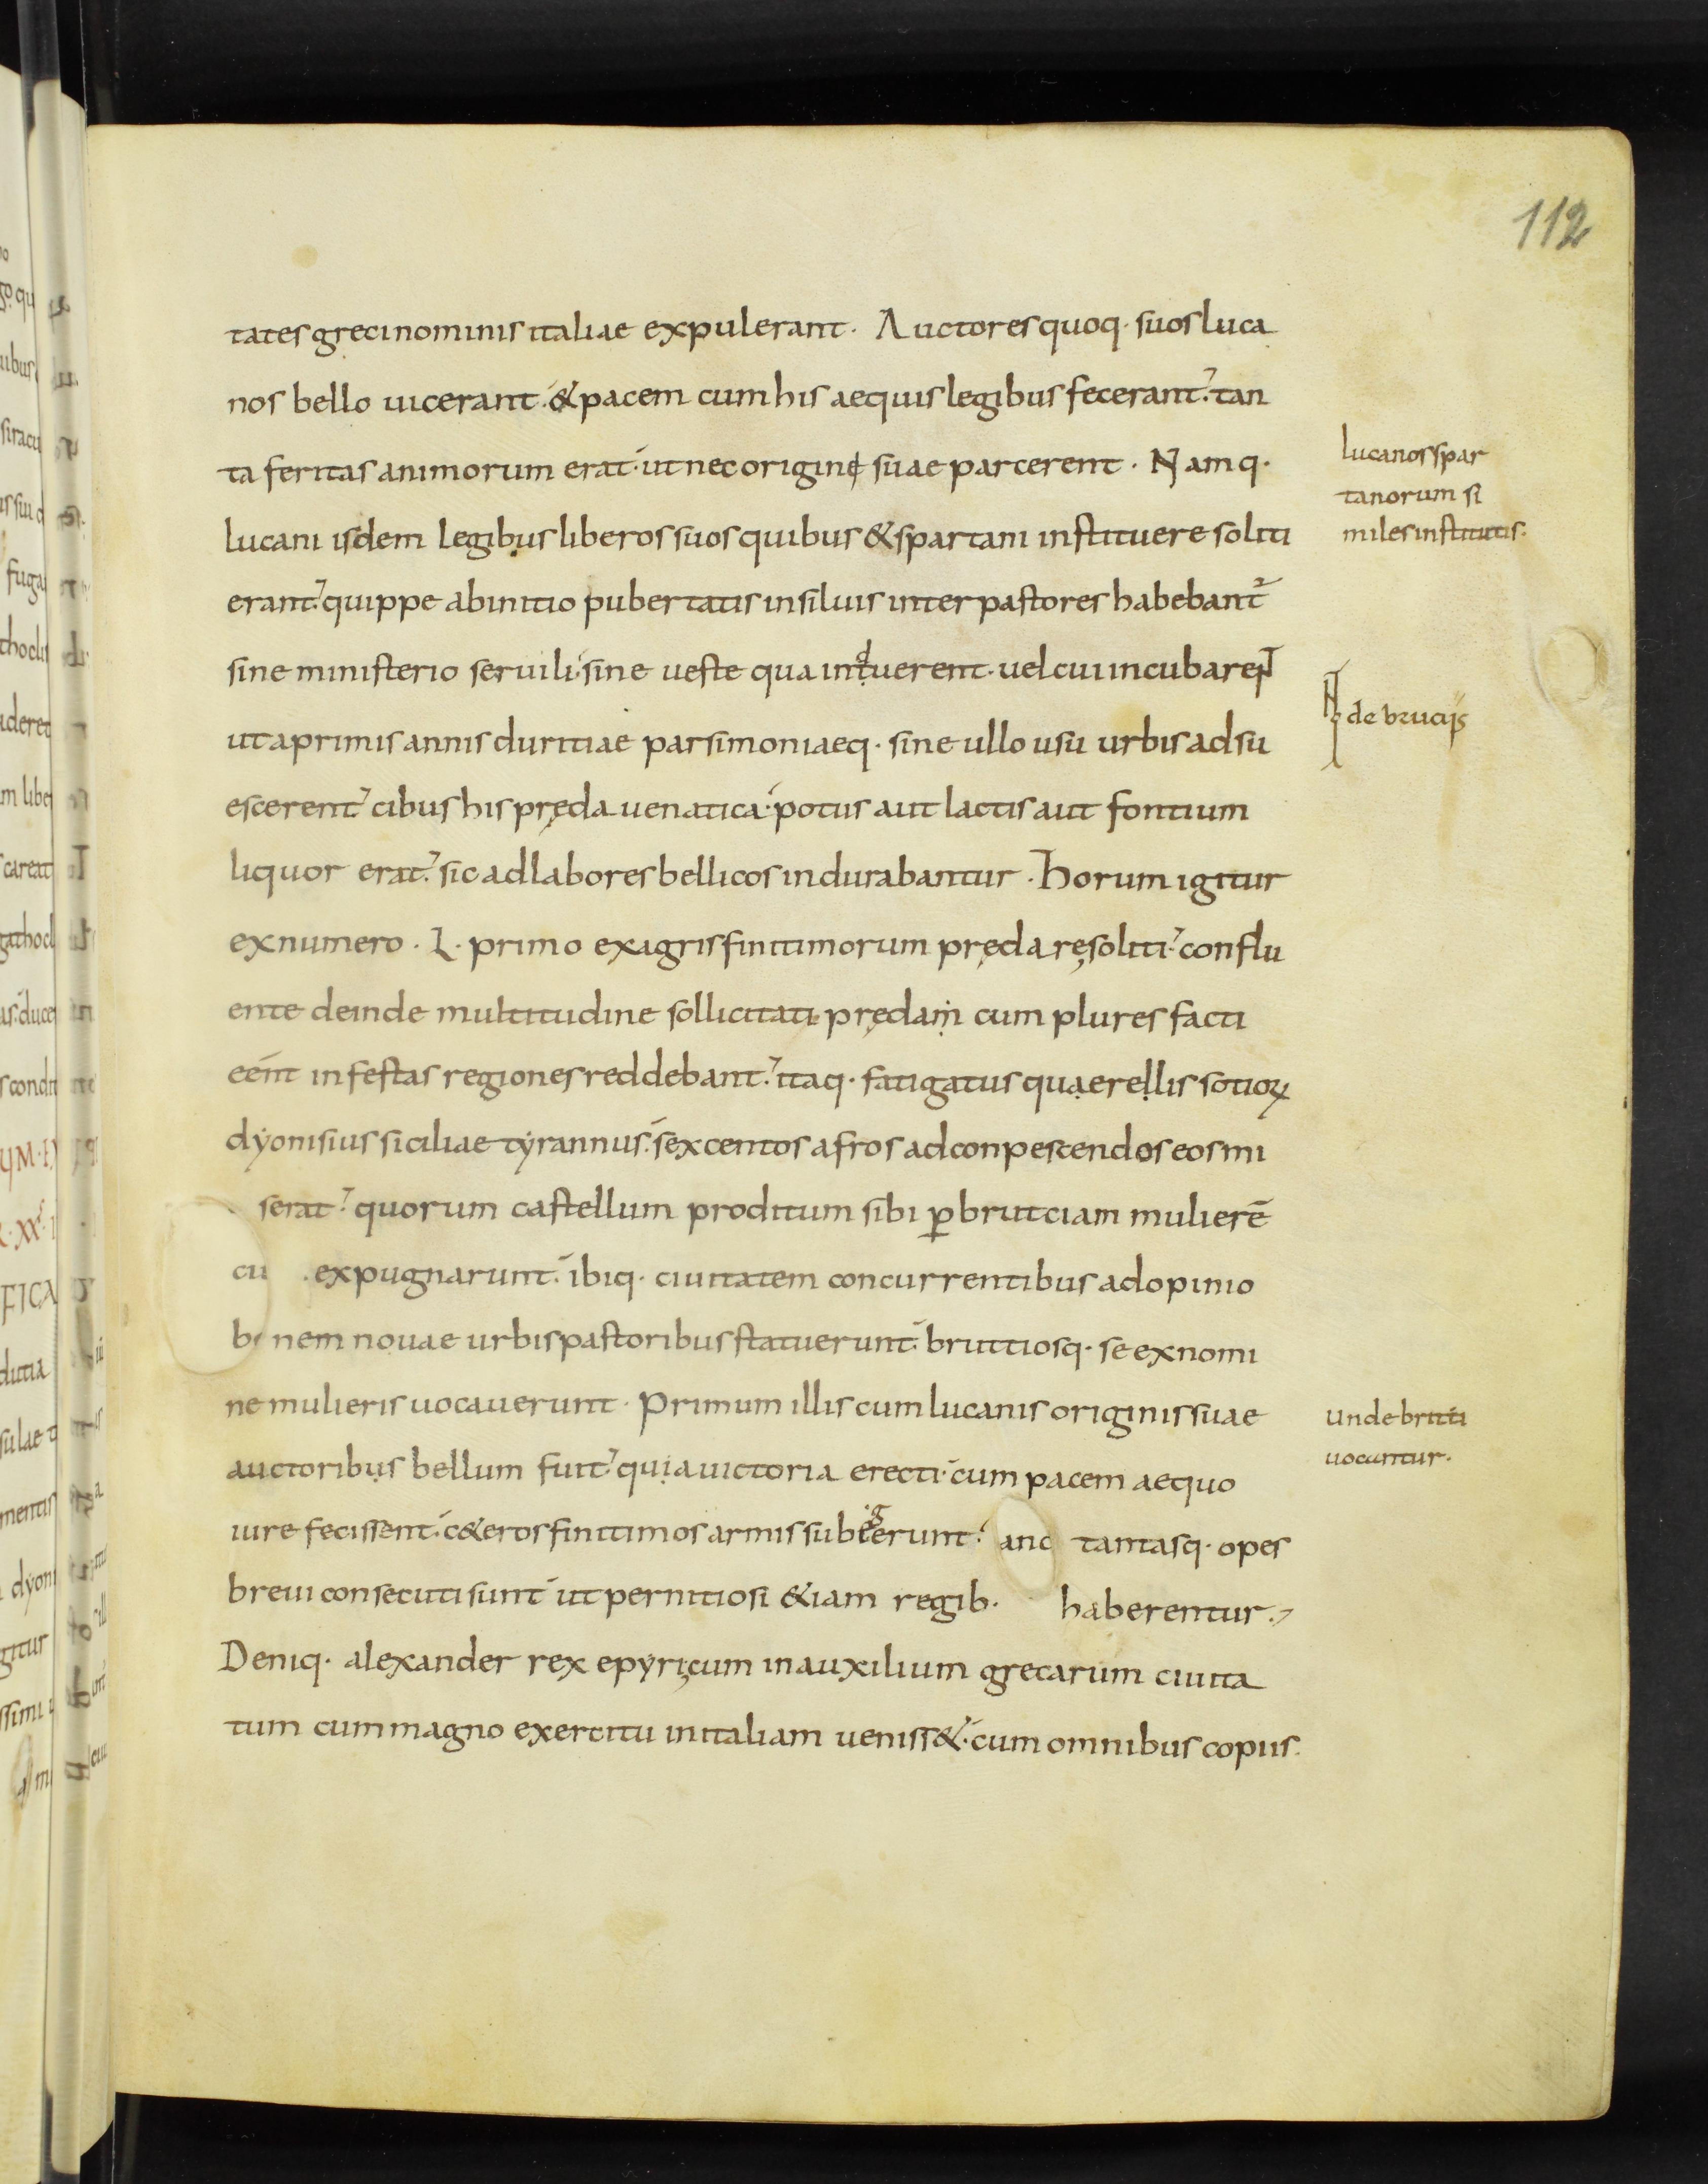 112
tates greci nominis italiae expulerant. Auctores quoq· suos luca
nos bello uicerant· & pacem cum his aequis legibus fecerant· tan
ta feritas animorum erat· ut nec origine suae parcerent. Namq·
lucani isdem legibus liberos suos quibus & spartani instituere soliti
erant· quippe ab initio pubertatis in siluis inter pastores habebantᷣ
sine ministerio seruili· sine ueste qua induerent· uel cui incubarent
ut a primis annis duritiae parsimoniaeq· sine ullo usu urbis adsu
escerent· cibus his pręda uenatica· potus aut lactis aut fontium
liquor erat· sic ad labores bellicos indurabantur. Horum igitur
ex numero · L · primo ex agris finitimorum prędare soliti· conflu
ente deinde multitudine sollicitati prędam cum plures facti
eēnt infestas regiones reddebant· itaq· fatigatus quaerellis sotioꝝ
dyonisius siciliae tyrannus· sexcentos afros ad conpescendos eos mi
serat· quorum castellum proditum sibi ꝑ bruttiam mulierē
expugnarunt· ibiq· ciuitatem concurrentibus ad opinio
nem nouae urbis pastoribus statuerunt· bruttiosq· se ex nomi
ne mulieris uocauerunt. Primum illis cum lucanis originis suae
auctoribus bellum fuit· quia uictoria erecti· cum pacem aequo
iure fecissent· c&eros finitimos armis subegerunt· tantasq· opes
breui consecuti sunt ut pernitiosi &iam regib· haberentur.
Deniq· alexander rex epyri cum in auxilium grecarum ciuita
tum cum magno exercitu in italiam ueniss&· cum omnibus copiis.
lucanos spar
tanorum si
miles institutis.
de brucijs
unde brittii
uocantur.